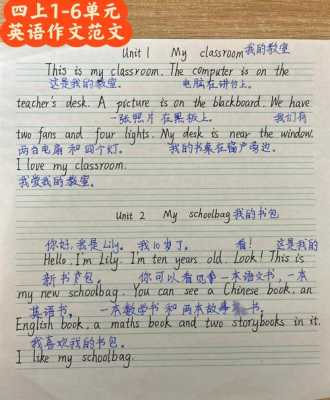 四上1-6单元
英语作文范文
Unit 1 My classroom 我的教室
This is my classroom. The computer is on the
这是我的教室。 电脑在讲台上。
teacher's desk. A picture is on the blackboard. We have
一张照片在黑板上。 我们有
two fans and four lights. My desk is near the window.
两台电扇和四个灯。 我的书桌在窗户旁边。
I love my classroom.
我爱我的教室。
Unit 2 My schoolbag 我的书包
你好,我是Lily。 我10岁了。 看! 这是我的
Hello. I'm Lily. I'm ten years old. Look! This is
新书包。 你可以看见一本语文书,一本
my new schoolbag. You can see a Chinese book, an
英语书, 一本数学书和两本故事书。
English book, a maths book and two storybooks in it.
我喜欢我的书包。
I like my schoolbag.